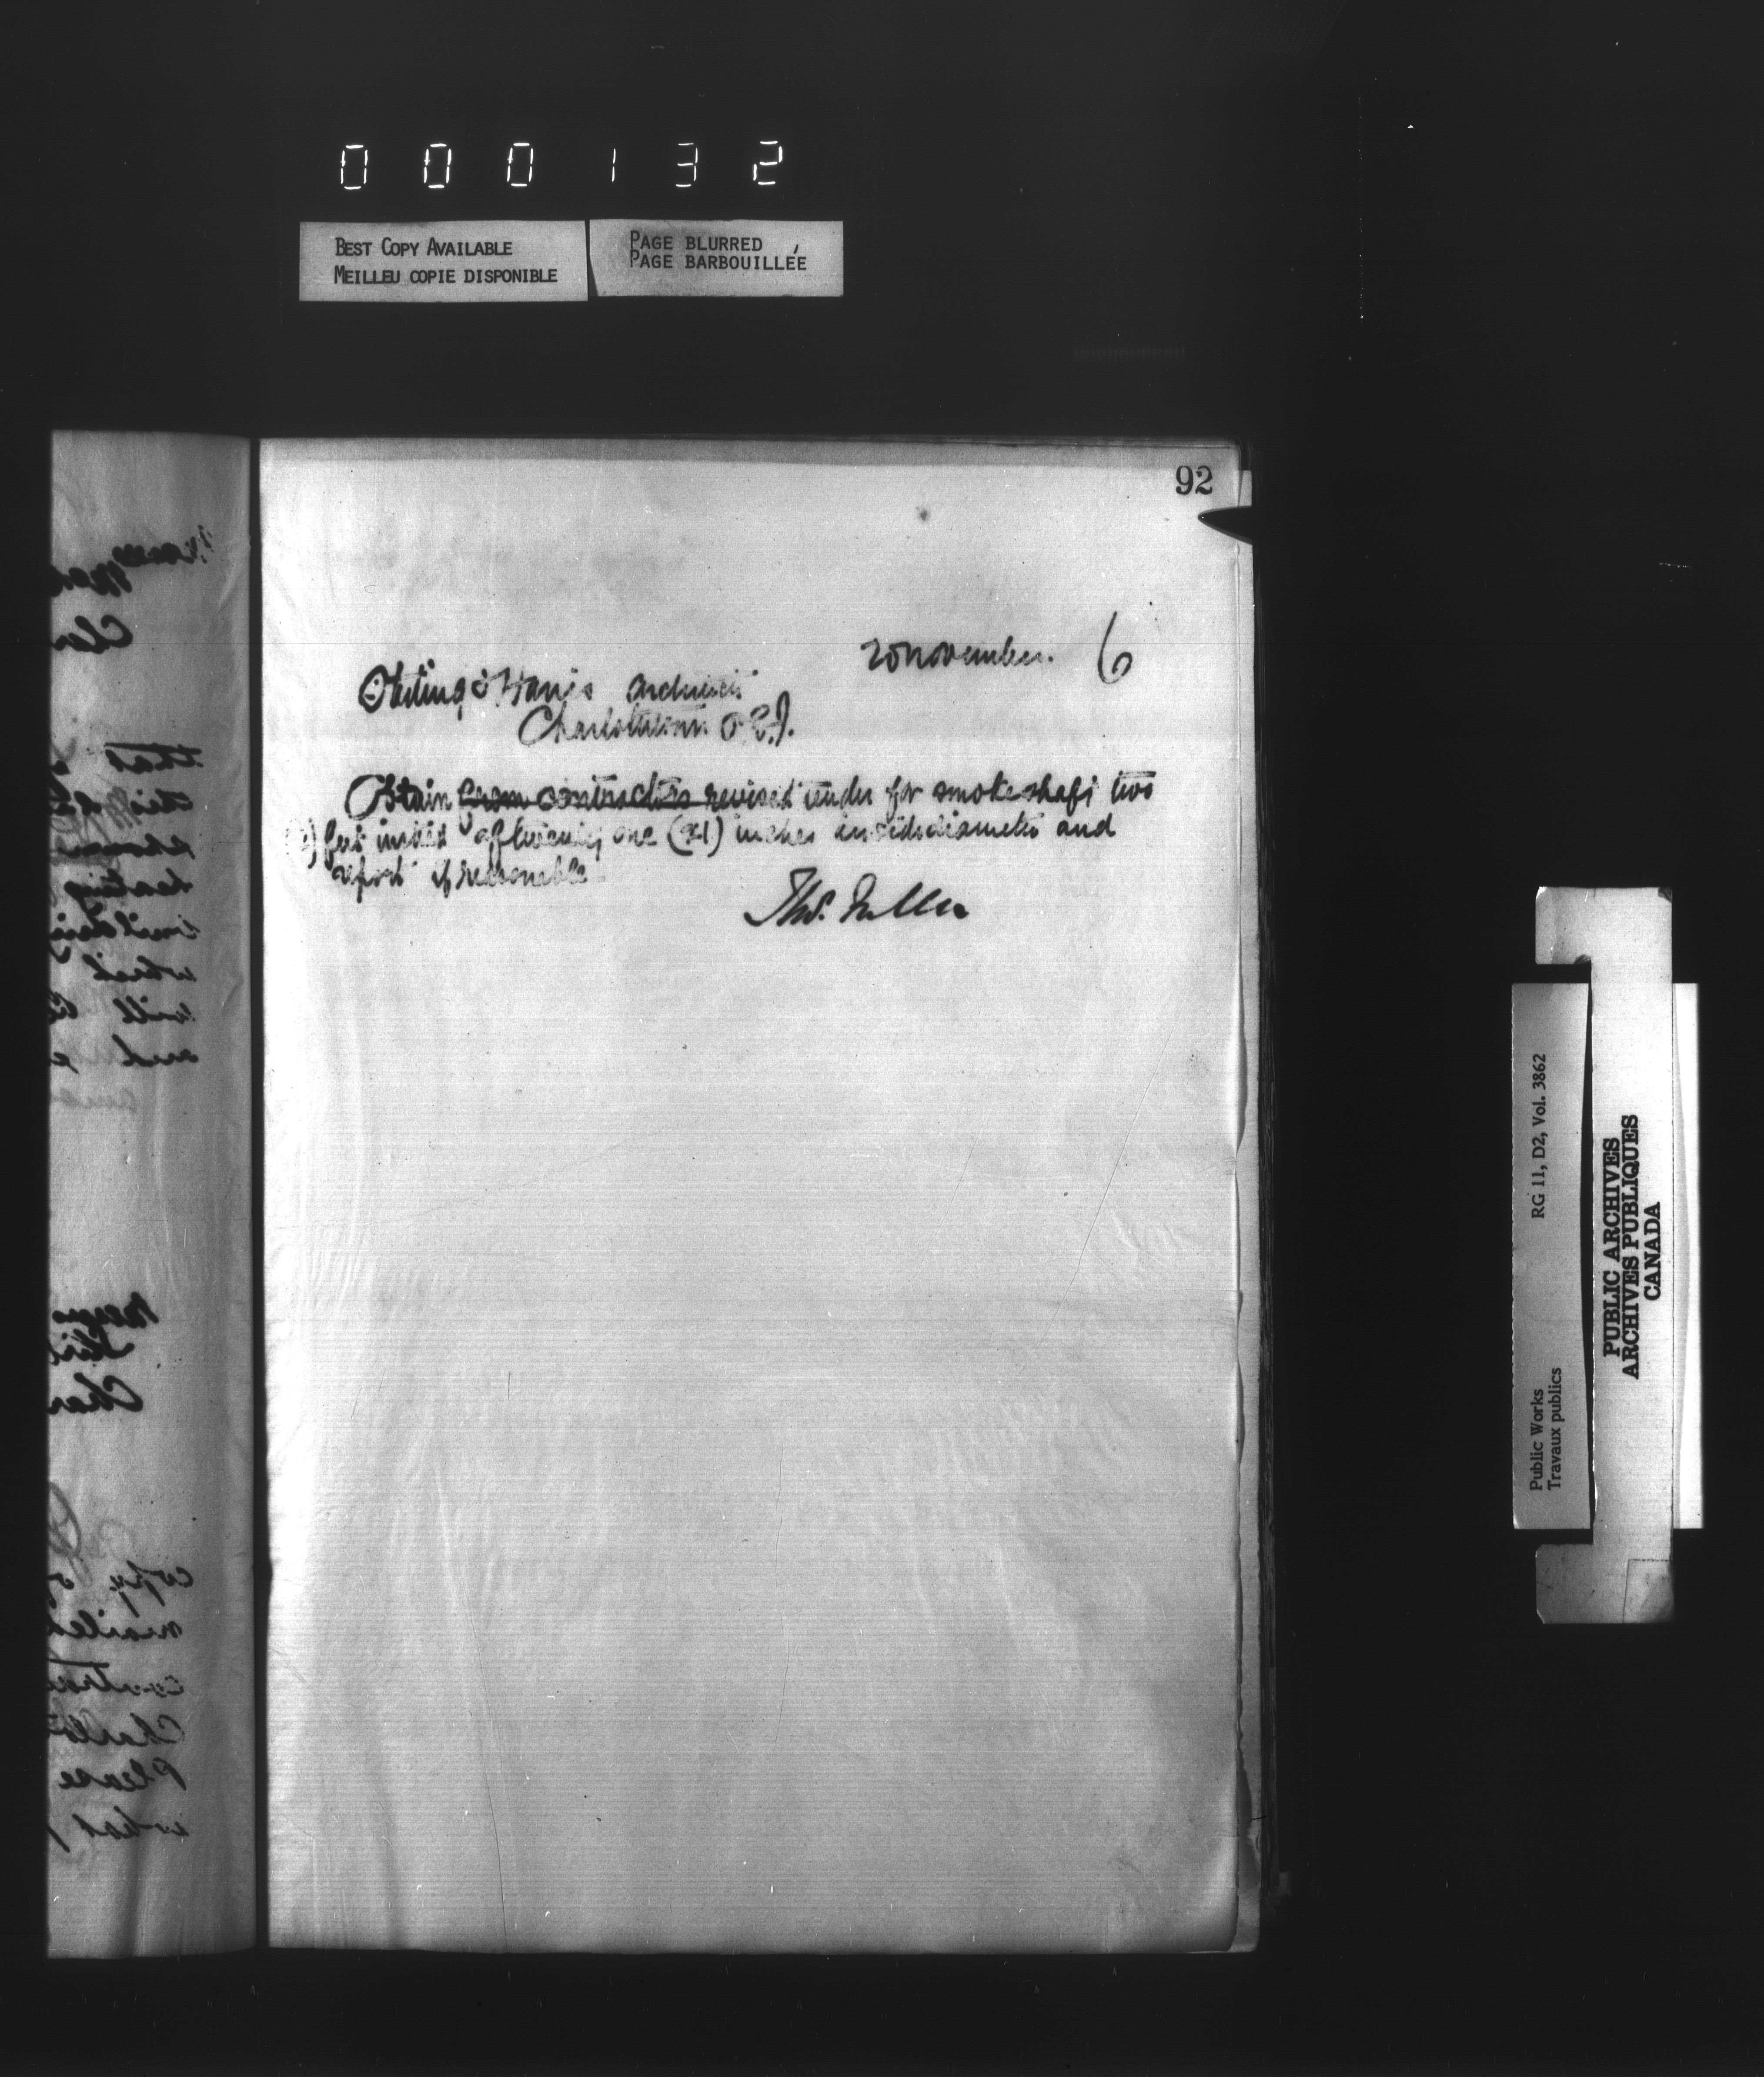 000132
BEST COPY AVAILABLE
MEILLEU COPIE DISPONIBLE
PAGE BLURRED
PAGE BARBOUILLÉE
92
20 November. 6
Stirling & Harris Architects
Charlottetown P.E.I.
Obtain from contractors revised tender for smoke shaft two
(2) feet instead of twenty one (21) inches inside diameter and
report if reasonable
Thos. Fuller
Public Works RG 11, D2, Vol. 3862
Travaux publics
PUBLIC ARCHIVES
ARCHIVES PUBLIQUES
CANADA